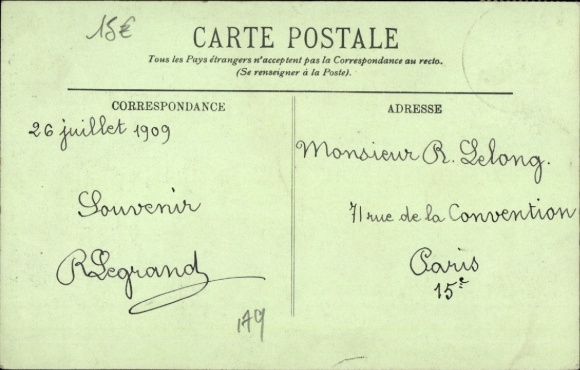 15€
CARTE POSTALE
Tous les Pays étrangers n'acceptent pas la Correspondance au recto.
(Se renseigner à la Poste).
CORRESPONDANCE
26 juillet 1909
Souvenir
R Legrand
149
ADRESSE
Monsieur R. Lelong.
71 rue de la Convention
Paris
15e